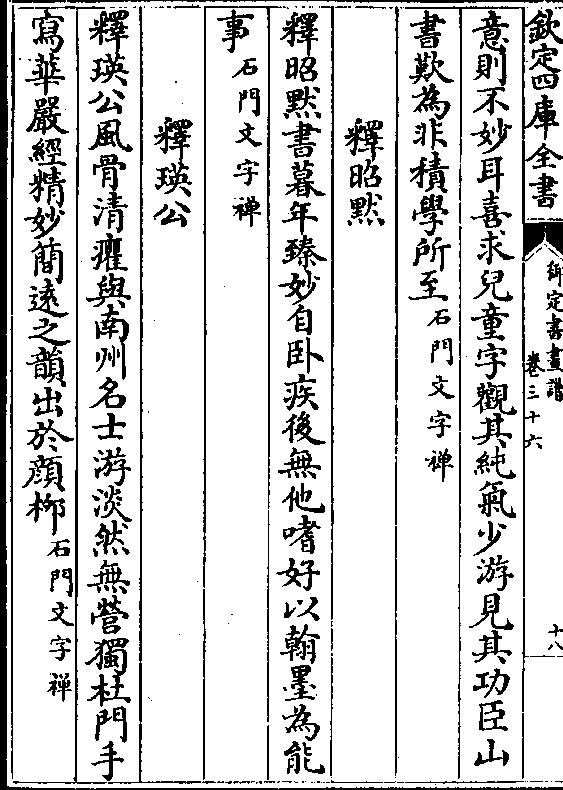 欽定四庫全書
御定書畫譜
卷三十六
十八
意則不妙耳喜求兒童字觀其純氣少游見其功臣山
書歎為非積學所至石門文字禪
釋昭默
釋昭默書暮年臻妙自卧疾後無他嗜好以翰墨為能
事石門文字禪
釋瑛公
釋瑛公風骨清癯與南州名士游淡然無營獨杜門手
寫華嚴經精妙簡遠之韻出於顔栁石門文字禪